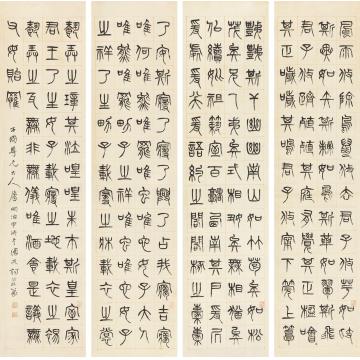 風雨攸除鳥鼠攸去君子攸芋如跂
斯翼如矢斯棘如鳥斯革如翬斯飛
君子攸躋殖殖其庭有覺其楹噲噲
其正噦噦其冥君子攸寧下莞上簟
秩秩斯干幽幽南山如竹苞矣如松
茂矣兄及弟矣式相好矣無相猶矣
似續妣祖築室百堵西南其戶爰居
爰處爰笑爰語約之閣閣椓之橐橐
乃安斯寢乃寢乃興乃占我夢吉夢
維何維熊維羆維虺維蛇大人占之
維熊維羆男子之祥維虺維蛇女子
之祥乃生男子載寢之牀載衣之裳
載弄之璋其泣喤喤朱芾斯皇室家
君王乃生女子載寢之地載衣之裼
載弄之瓦無非無儀唯酒食是議無
父母詒罹